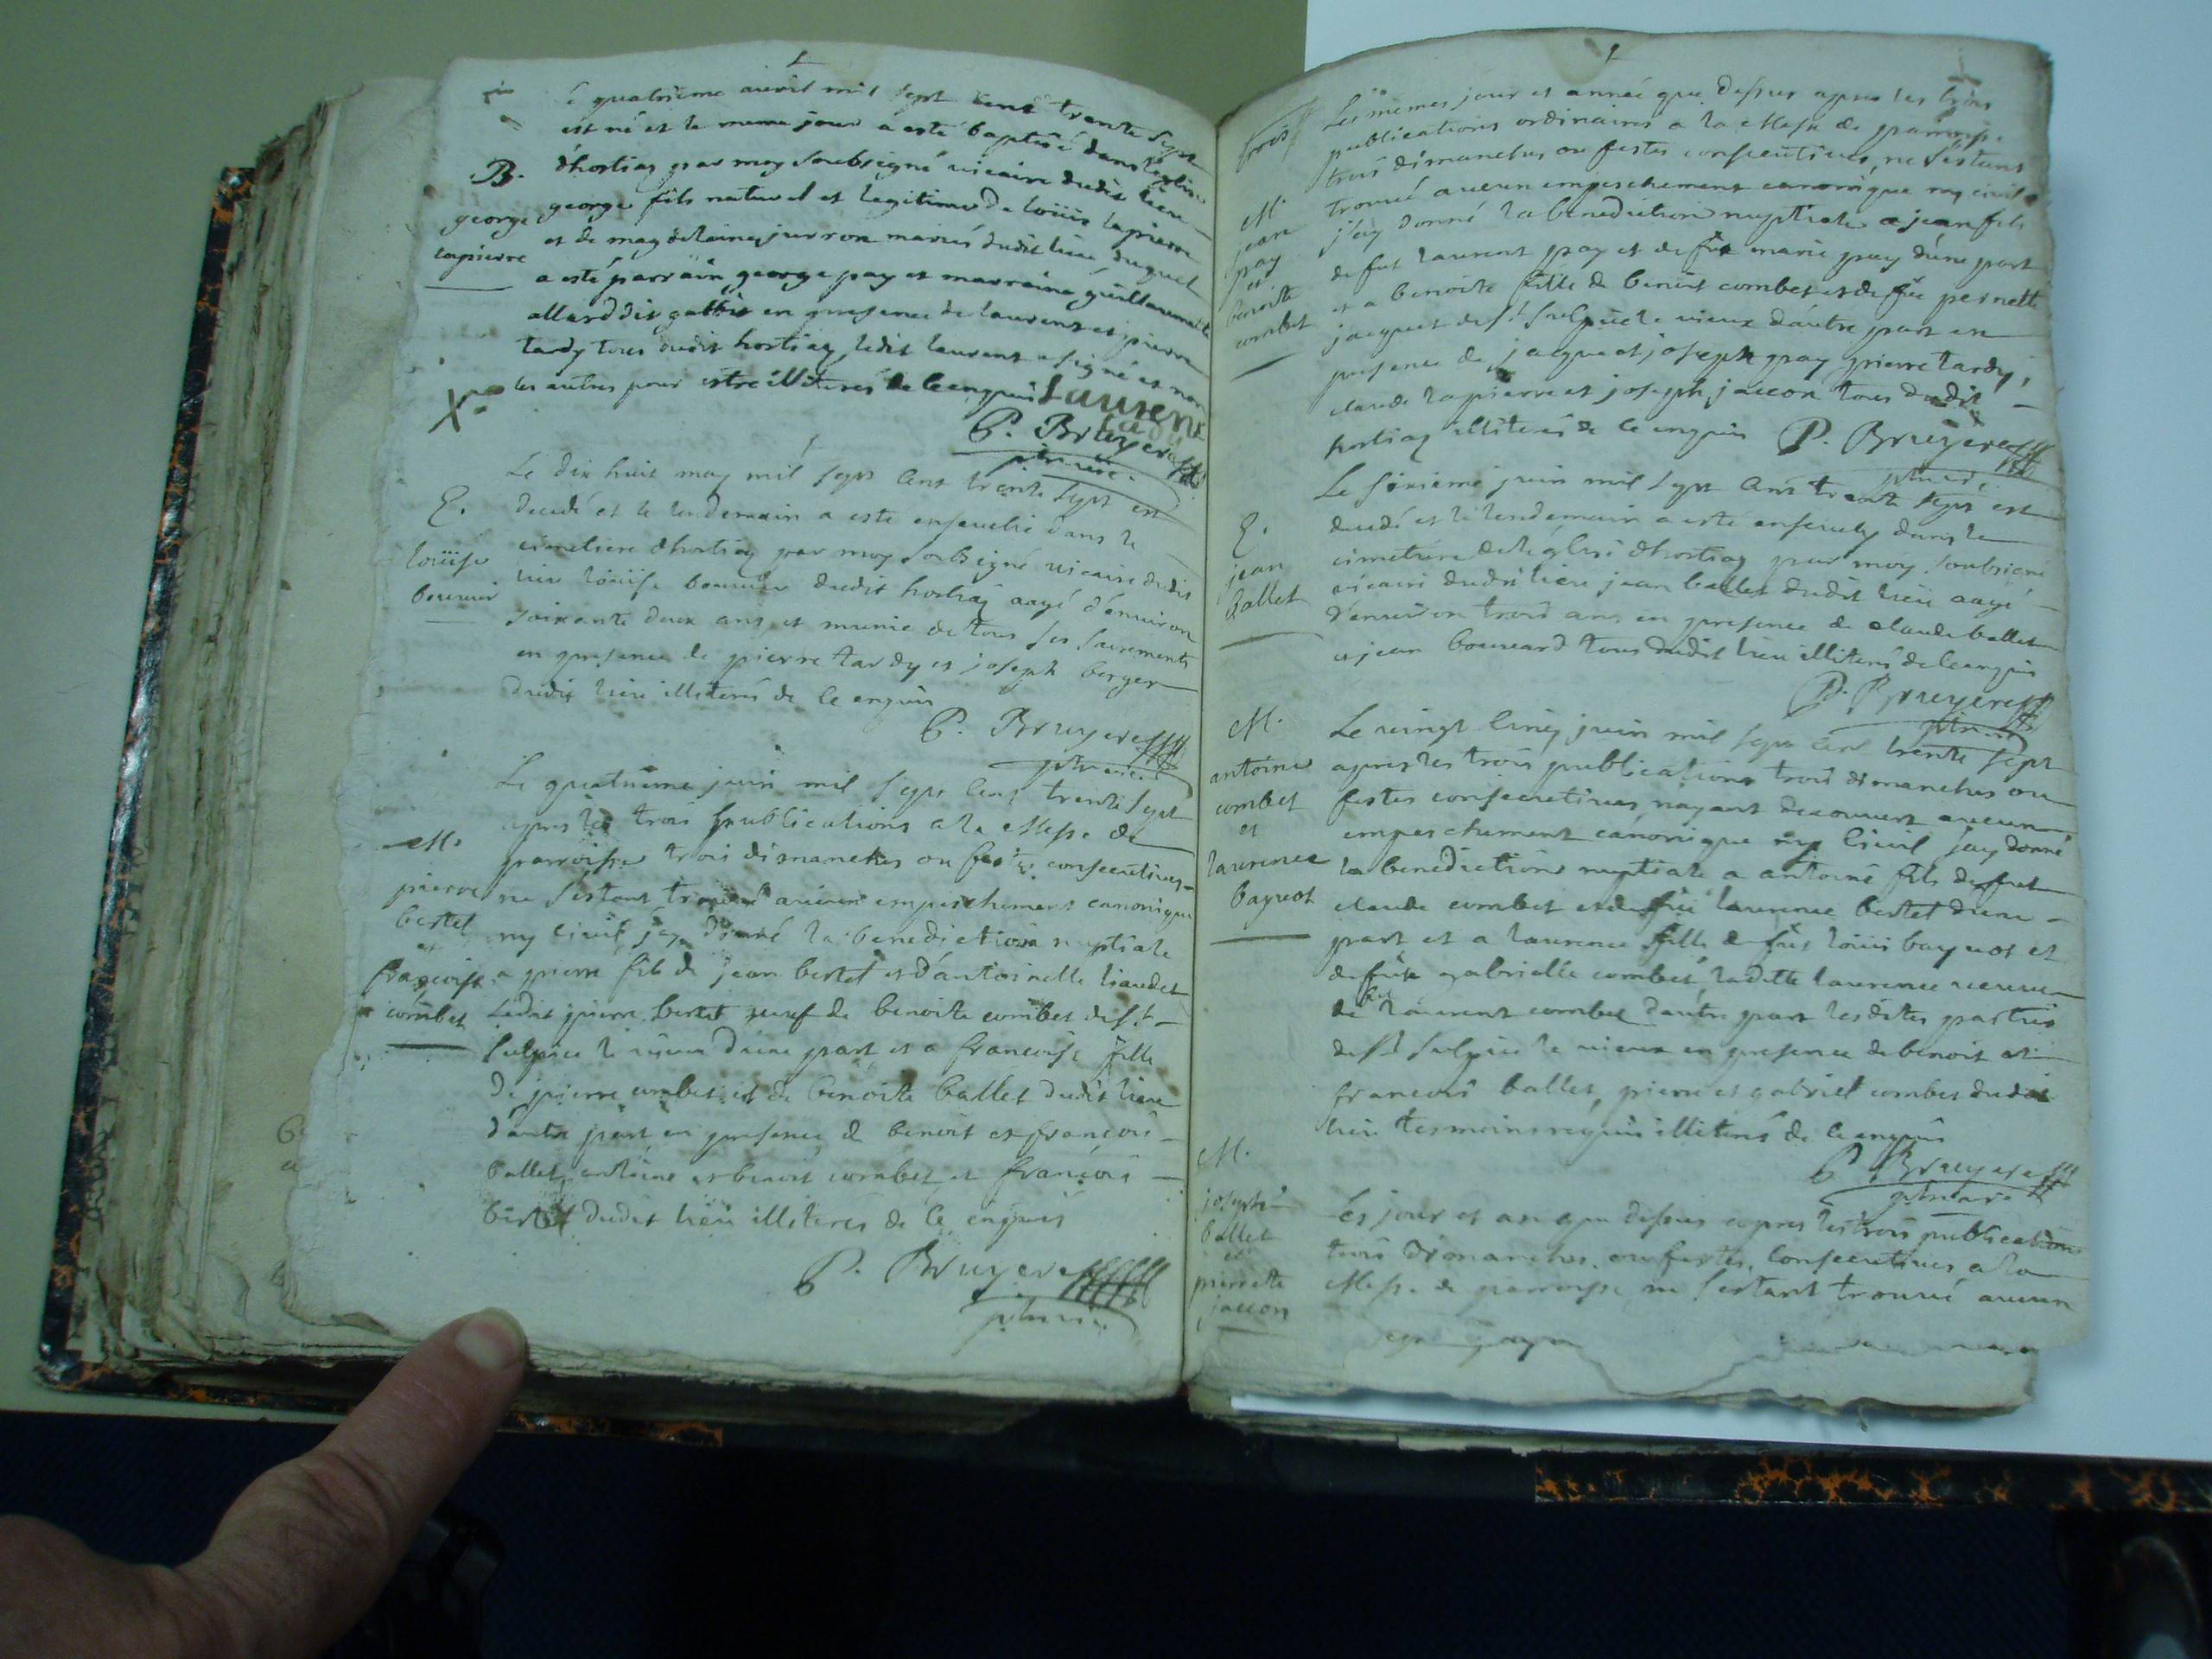 B.
george
lapierre
e quatrieme avril mil sept cent trente sept
est né et le meme jour a esté baptisé dans leglise
dhostiaz par moy soubsigné vicaire dudit lieu
george fils naturel et legitime de loüis lapierre
et de magdelaine juvron mariés dudit lieu, duquel
a esté parrain george pay et marraine guillaumette
allard dit en presence de laurent et pierre
tardy tous dudit hostiaz, ledit laurent a signé et non
les autres pour estre illiterés de ce enquis Laurent
P. Bruyere
E.
loüise
Le dix huit may mil sept cent trente sept est
decedé et le lendemain a esté ensevelie dans le
cimetiere dhostiaz par moy soubsigné vicaire dudit
lieu loüise dudit hostiaz aagé d'environ
soixante deux ans, et munie de tous ses sacrements
en presence de pierre tardy et joseph berger
dudit lieu illiterés de ce enquis
P. Bruyere
M.
pierre
bertet
et
françoise
combet
Le quatrieme juin mil sept cent trente sept
apres les trois publications a la Messe de
parroisse trois dimanches ou festes consecutives
ne sestant trouvé aucun empeschement canonique
ny civil jay donné la benediction nuptiale
a pierre fils de jean bertet et d'antoinette liaudet
Ledit pierre bertet veuf de benoite combet de st
Sulpice le vieux d'une part et a francoise fille
de pierre combet et de benoite ballet dudit lieu
d'autre part en presence de benoit et francois
ballet, antoine et benoit combet et francois
bertet dudit lieu illiterés de ce enquis
P. Bruyere
M.
jean
pay
et
benoite
combet
Les mêmes jour et année que dessus apres les trois
publications ordinaires a la Messe de parroisse
trois dimanches ou festes consecutives, ne sestant
trouvé aucun empeschement canonique ny civil
j'ay donné la benediction nuptiale a jean fils
de fut laurent pay et de fue marie pay d'une part
et a benoite fille de benoit combet et de fue pernette
jacquet de st Sulpice le vieux d'autre part en
presence de jacque et joseph pay pierre tardy,
claude lapierre et joseph jaccon tous dudit
hostiaz illiterés de ce enquis P. Bruyere
E.
jean
Ballet
Le sixieme juin mil sept cent trente sept est
decedé et le lendemain a esté ensevely dans le
cimetiere de leglise dhostiaz par moy soubsigné
vicaire dudit lieu jean ballet dudit lieu aagé
d'environ trois ans en presence de claude ballet
et jean tous dudit lieu illiterés de ce enquis
P. Bruyere
M.
antoine
combet
et
laurence
bayeot
Le vingt cinq juin mil sept cent trente sept
apres les trois publications trois dimanches ou
festes consecutives nayant decouvert aucun
empeschement canonique ny civil jay donné
la benediction nuptiale a antoine fils de fut
claude combet et de fue laurence bertet d'une
part et a laurence fille de fut loüis bayeot et
de fue gabrielle combet, ladite laurence veuve
de fut laurent combet d'autre part lesdites parties
de st Sulpice le vieux en presence de benoit et
francois ballet, pierre et gabriel combet dudit
lieu tesmoins requis illiterés de ce enquis
P. Bruyere
M.
joseph
ballet
et
pierrette
jaccon
Les jour et an que dessus apres les trois publications
trois dimanches ou festes consecutives a la
Messe de parroisse ne sestant trouvé aucun